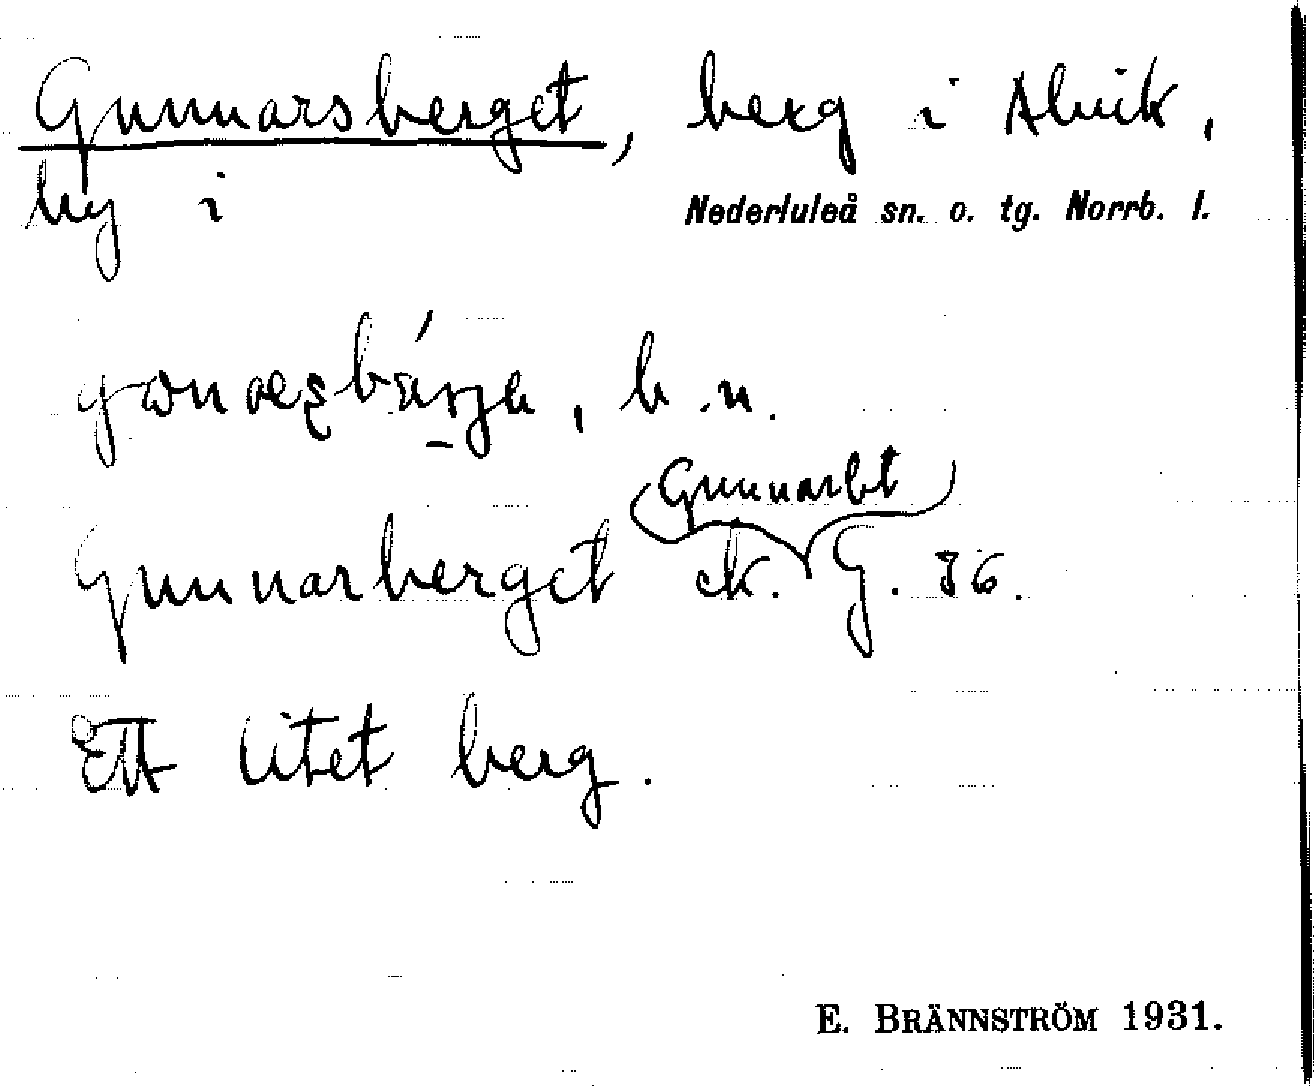 Gunnarsberget, berg i Alvik,
by i Nederluleå sn. o. tg. Norrb. l.
b.n.
Gunnarbt
Gunnarberget ek. G. 86.
Ett litet berg.
E. BRÄNNSTRÖM 1931.